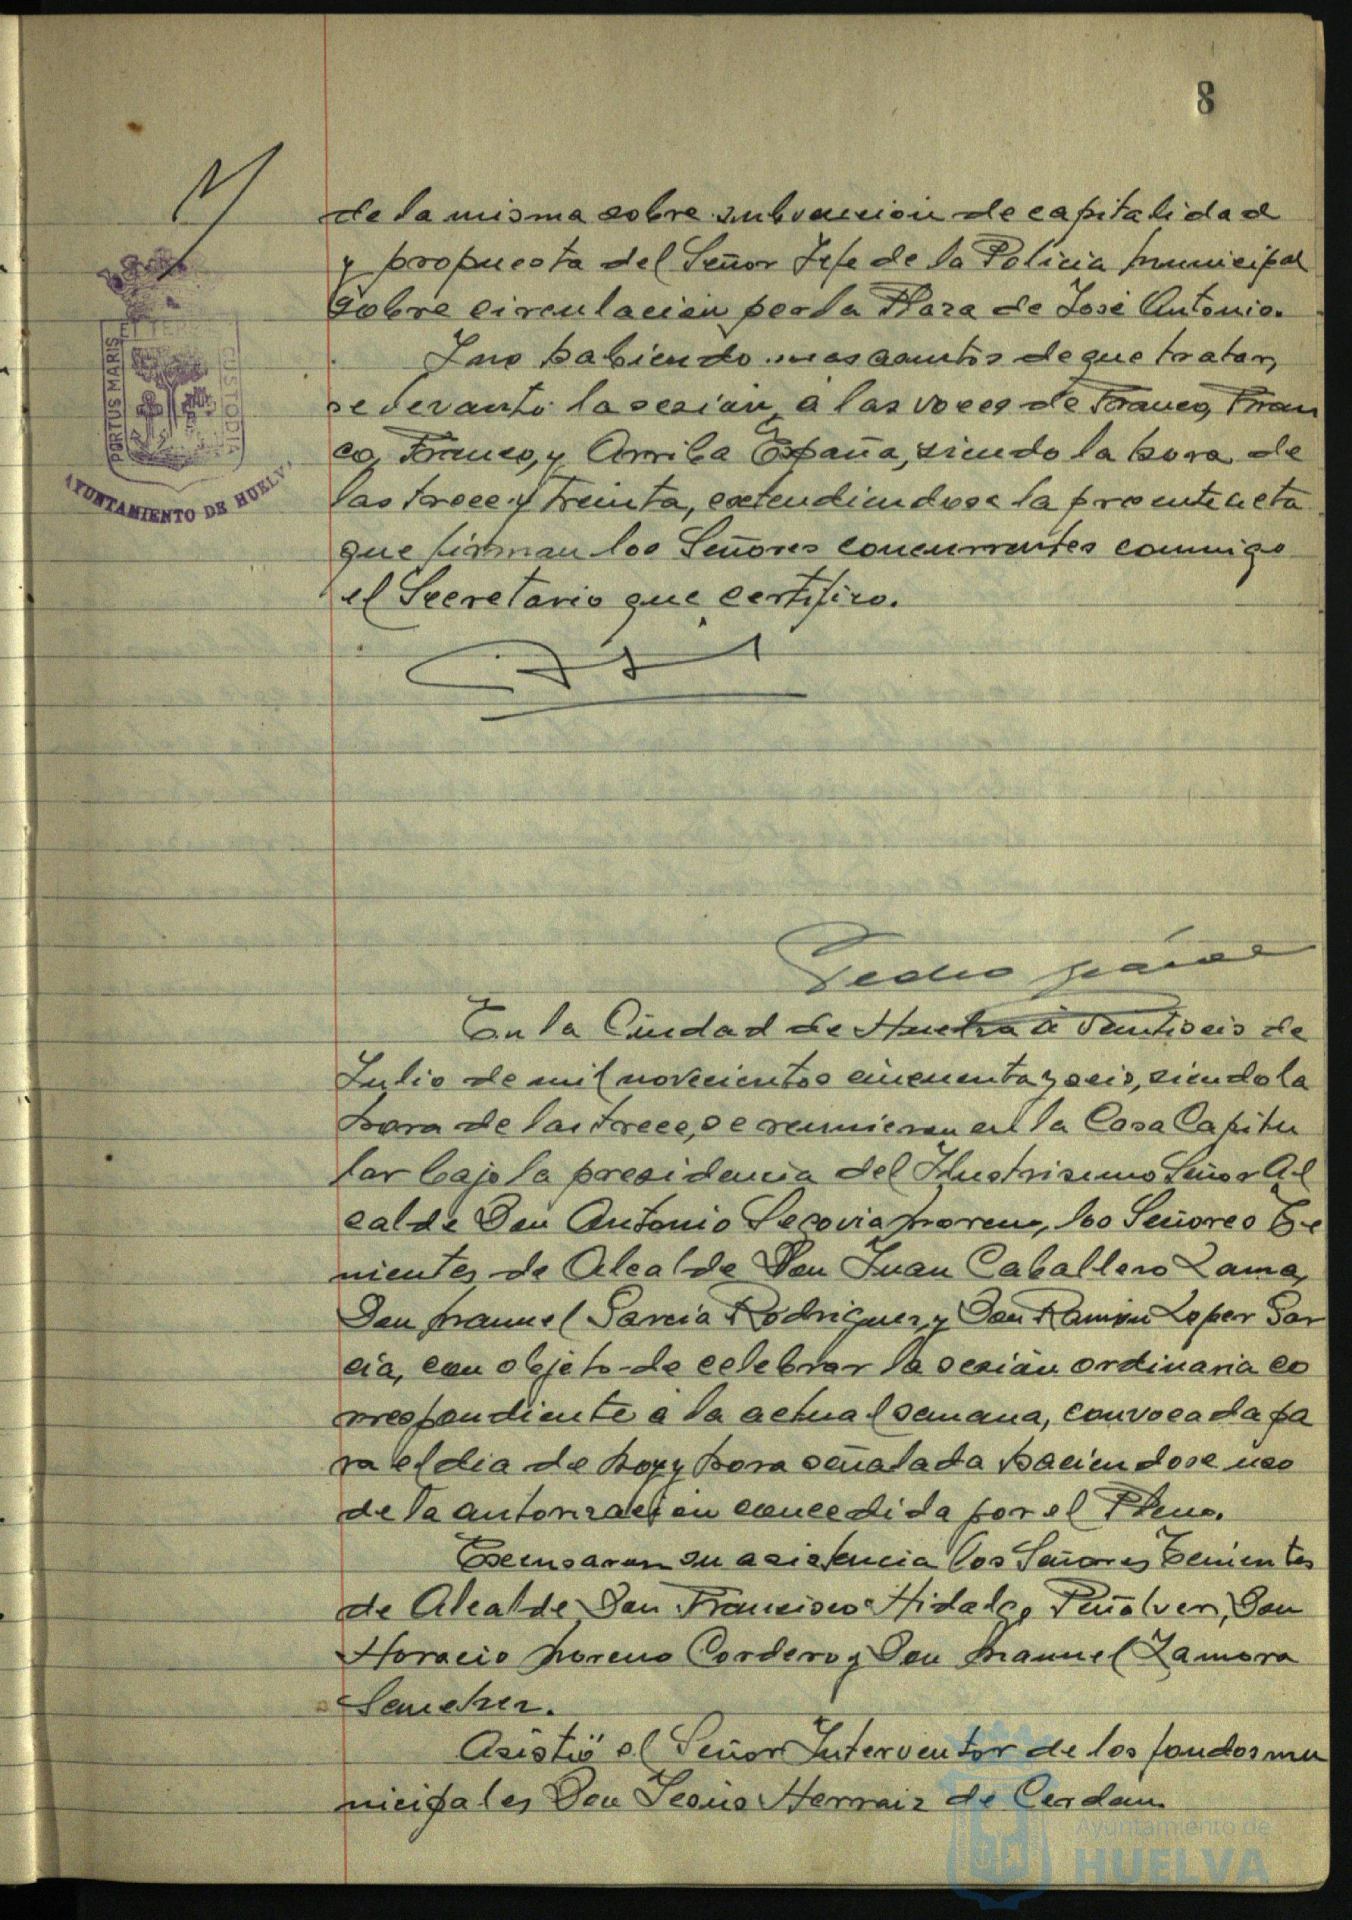 8
de la misma sobre subvención de capitalidad
y propuesta del Señor Jefe de la Policia municipal
sobre circulación por la Plaza de José Antonio.
Y no habiendo mas asuntos de que tratar,
se levantó la sesión, a las voces de Franco, Fran
co, Franco, y Arriba España, siendo la hora de
las trece y treinta, extendiendose la presente acta
que firman los Señores concurrentes conmigo
el Secretario que certifico.
PORTUS MARIS
ET TERRE
CUSTODIA
AYUNTAMIENTO DE HUELVA
Pedro
En la Ciudad de Huelva a veintiseis de
Julio de mil novecientos cincuenta y seis, siendo la
hora de las trece, se reunieron en la Casa Capitu
lar bajo la presidencia del Ilustrisimo Señor Al
calde Don Antonio Segovia Moreno, los Señores Te
nientes de Alcalde Don Juan Caballero Lama,
Don Manuel Garcia Rodriguez, y Don Ramón Lopez Gar
cia, con objeto de celebrar la sesión ordinaria co
rrespondiente a la actual semana, convocada pa
ra el dia de hoy y hora señalada haciendose uso
de la autorización concedida por el Pleno.
Excusaron su asistencia los Señores Tenientes
de Alcalde Don Francisco Hidalgo Peñalver, Don
Horacio Moreno Cordero y Don Manuel Zamora
Sanchez.
Asistió el Señor Interventor de los fondos mu
nicipales Don Jesús Herraiz de Cerdan.
Ayuntamiento de
HUELVA